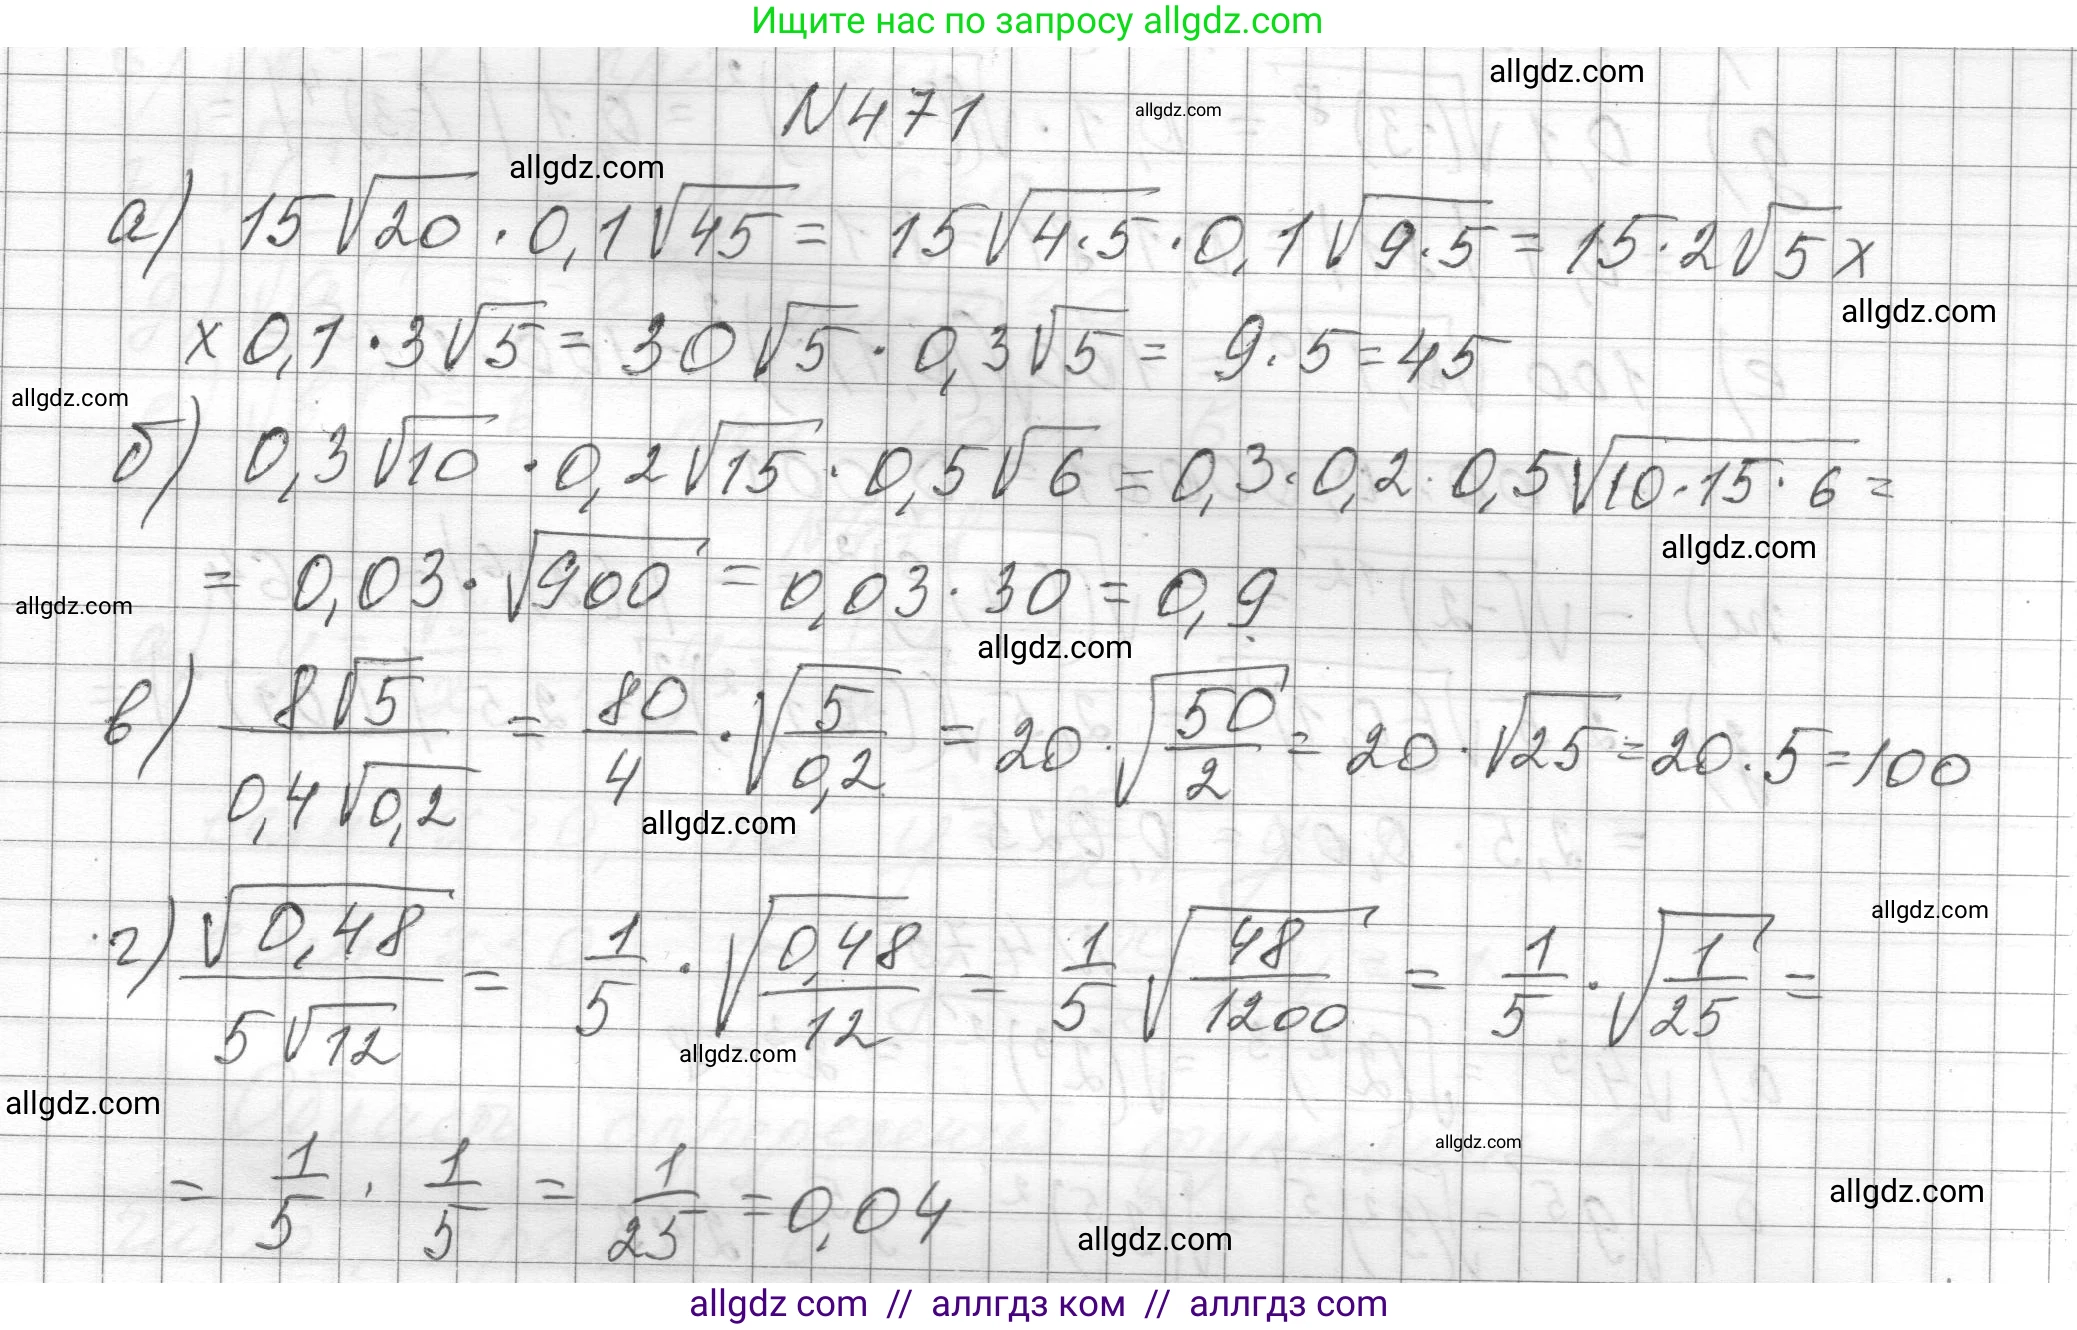 Ищите нас по запросу allgdz.com
allgdz.com
N 471
allgdz.com
allgdz.com
а) 15√20 · 0,1√45 = 15√(4·5) · 0,1√(9·5) = 15·2√5 ×
allgdz.com
× 0,1 · 3√5 = 30√5 · 0,3√5 = 9·5 = 45
allgdz.com
б) 0,3√10 · 0,2√15 · 0,5√6 = 0,3·0,2·0,5√(10·15·6) =
allgdz.com
= 0,03 · √900 = 0,03 · 30 = 0,9
allgdz.com
allgdz.com
в) 8√5 / 0,4√0,2 = 80/4 · √(5/0,2) = 20 · √(50/2) = 20 · √25 = 20 · 5 = 100
allgdz.com
allgdz.com
г) √0,48 / 5√12 = 1/5 · √(0,48/12) = 1/5 √(48/1200) = 1/5 · √(1/25) =
allgdz.com
allgdz.com
allgdz.com
= 1/5 · 1/5 = 1/25 = 0,04
allgdz.com
allgdz.com
allgdz com // аллгдз ком // аллгдз com